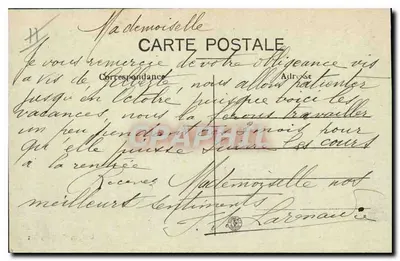 Mademoiselle
CARTE POSTALE
Je vous remercie de votre obligeance vis
Correspondance Adresse
à vis de nous allons patienter
jusqu'en Octobre puisque voici les
vacances, nous la ferons travailler
un peu pendant ces mois pour
qu'elle puisse suivre les cours
à la rentrée
Recevez Mademoiselle nos
meilleurs sentiments